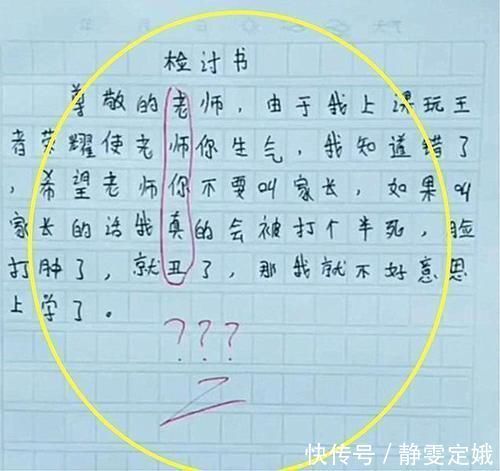 检讨书
尊敬的老师，由于我上课玩王
者荣耀使老师你生气，我知道错了
，希望老师你不要叫家长，如果叫
家长的话我真的会被打个半死，脸
打肿了，就丑了，那我就不好意思
上学了。
???
快传号/静雯定娥